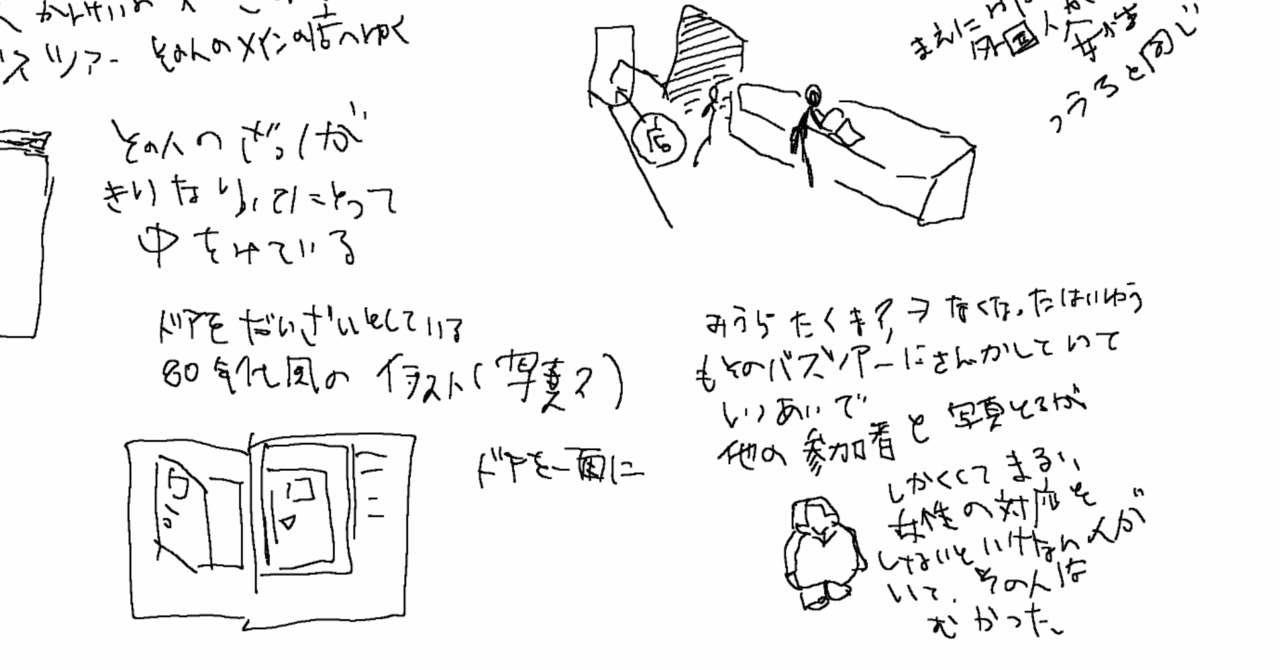 スツアー その人のメインの店へゆく
その人のざっしが
きりなりいてにとって
中をみている
ドアをだいざいとしている
80年代風のイラスト(写真?)
ドアを一面に
店
まえに
外国人
女がま
っうろと同じ
みうら たくま?→なくなったはいゆう
もそのバスツアーにさんかしていて
いいあいで
他の参加者と写真とるが
しかくくてまるい
女性の対応を
しないといけない人が
いて、その人は
むかった、